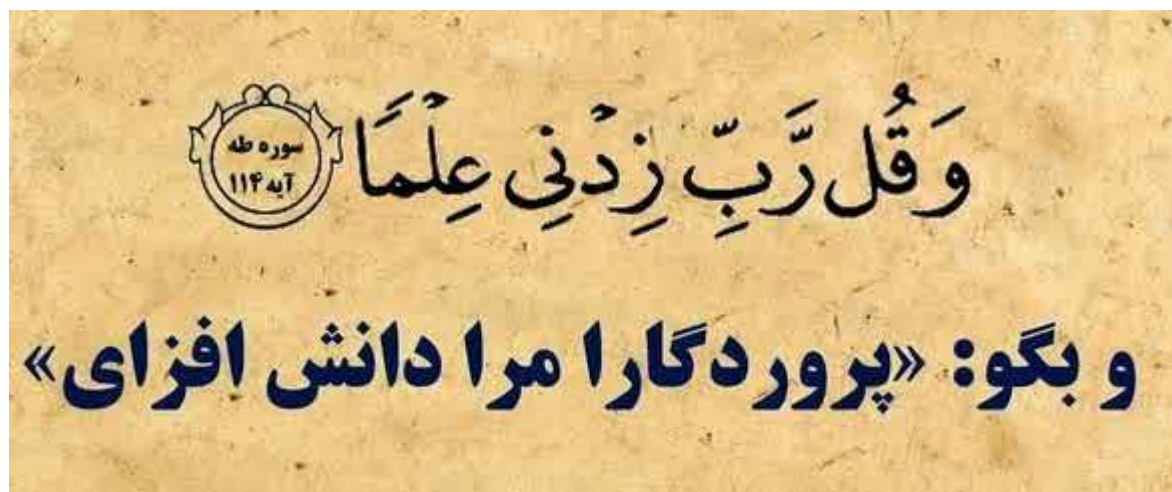 وَقُل رَّبِّ زِدْنِی عِلْمًا
سوره طه
آیه ۱۱۴
و بگو: «پروردگارا مرا دانش افزای»